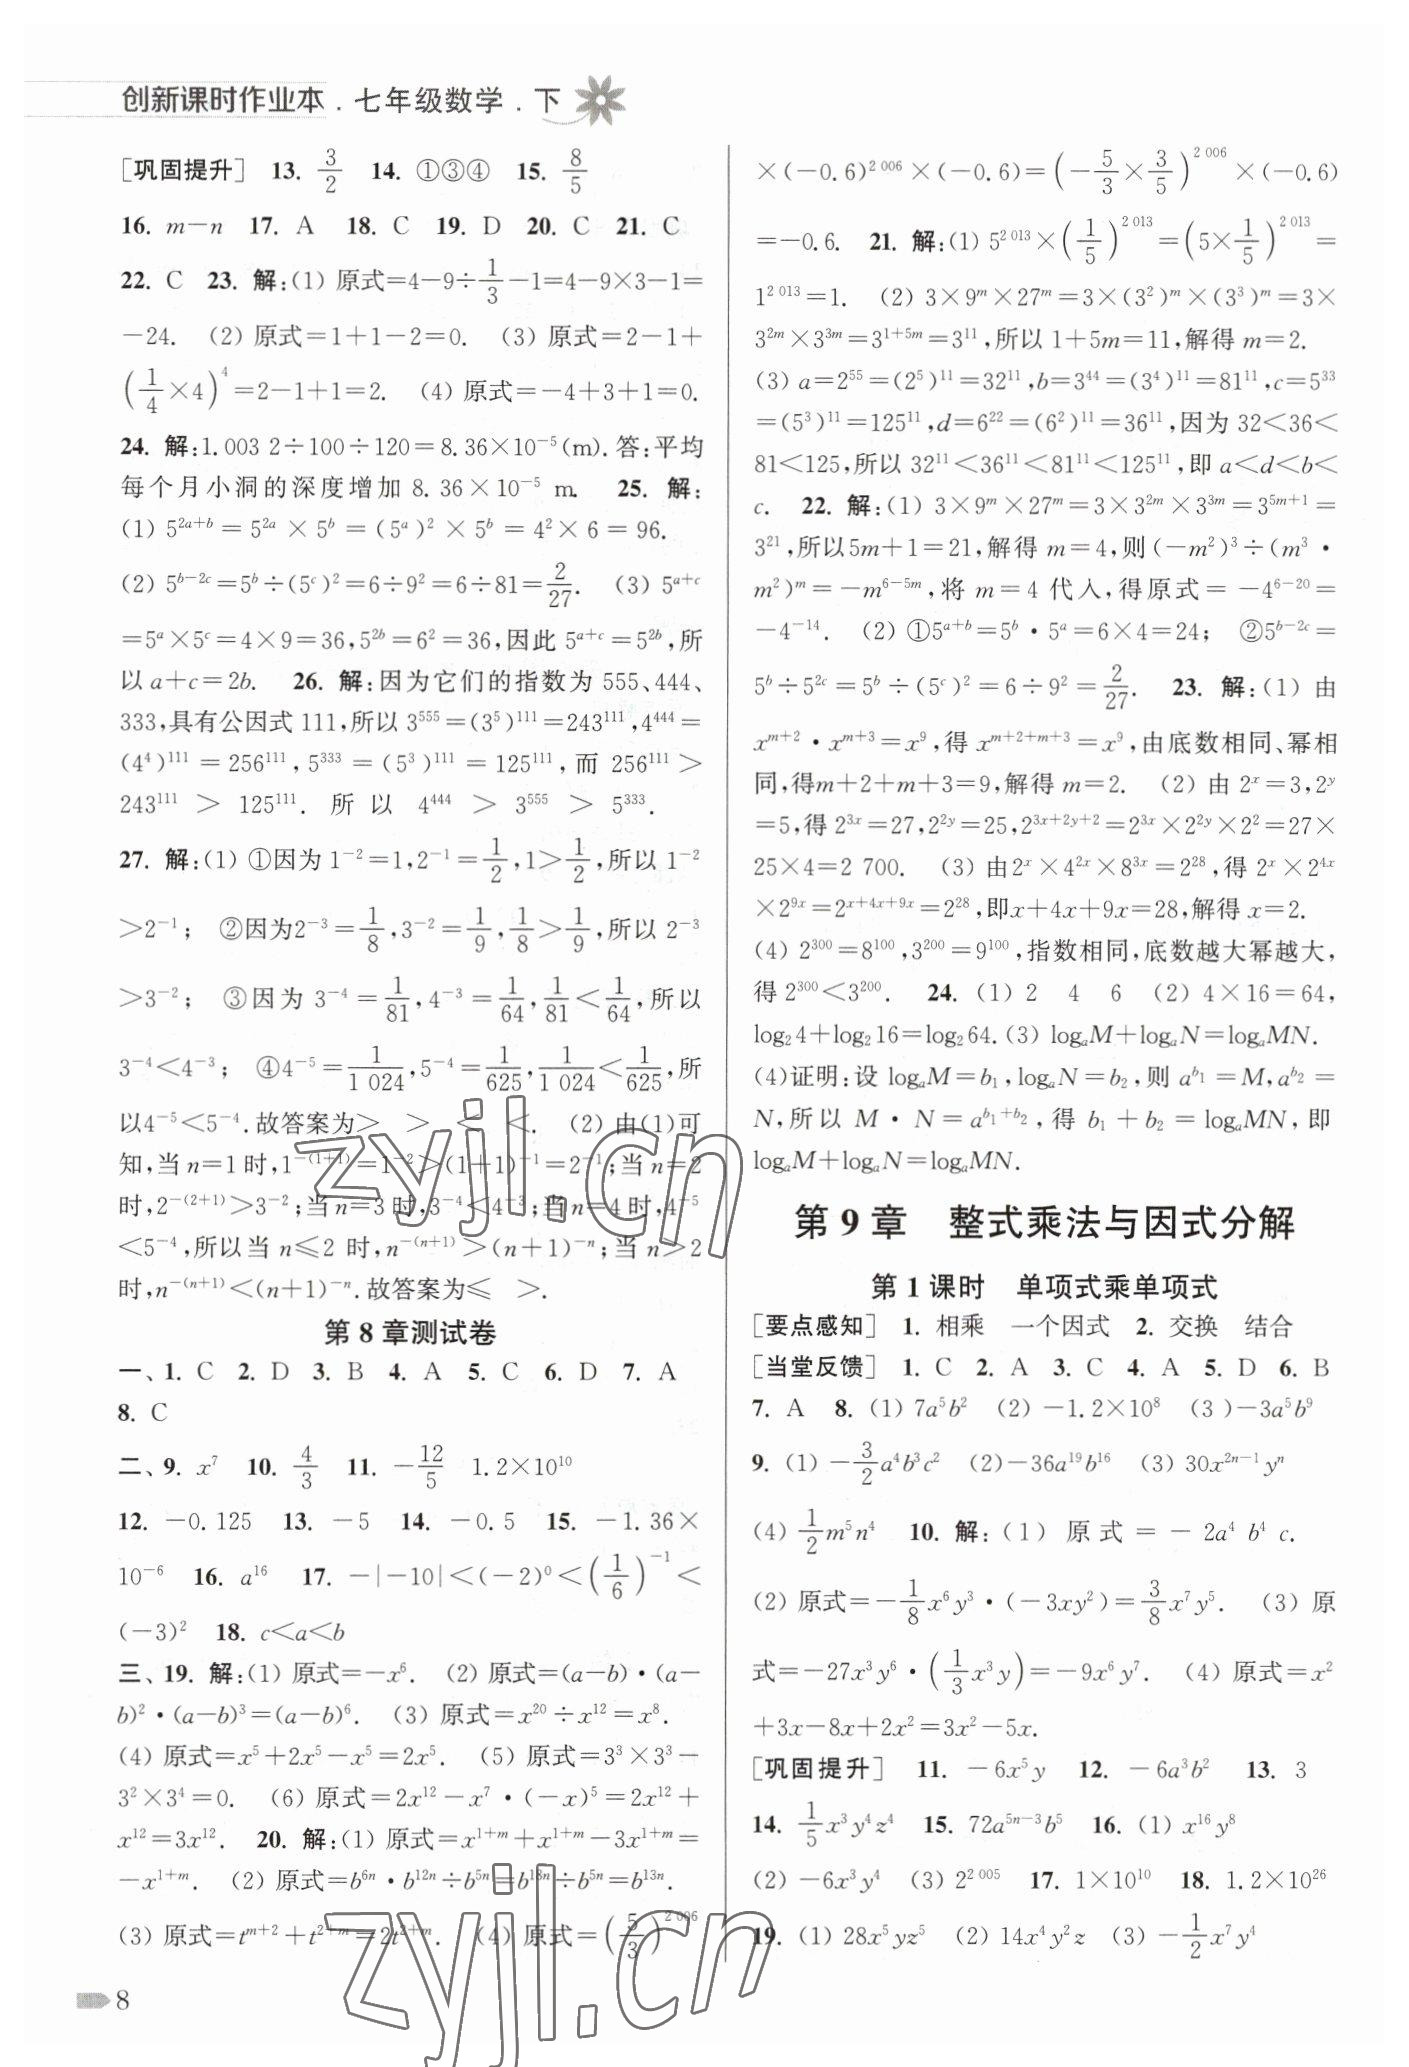 创新课时作业本．七年级数学．下
［巩固提升］ 13. 3/2 14. ①③④ 15. 8/5
16. m－n 17. A 18. C 19. D 20. C 21. C
22. C 23. 解:(1) 原式＝4－9÷1/3－1＝4－9×3－1＝
－24. (2) 原式＝1＋1－2＝0. (3) 原式＝2－1＋
(1/4×4)^4＝2－1＋1＝2. (4) 原式＝－4＋3＋1＝0.
24. 解:1.003 2÷100÷120＝8.36×10^{－5}(m).答:平均
每个月小洞的深度增加 8.36×10^{－5} m. 25. 解:
(1) 5^{2a＋b}＝5^{2a}×5^b＝(5^a)^2×5^b＝4^2×6＝96.
(2) 5^{b－2c}＝5^b÷(5^c)^2＝6÷9^2＝6÷81＝2/27. (3) 5^{a＋c}
＝5^a×5^c＝4×9＝36,5^{2b}＝6^2＝36,因此 5^{a＋c}＝5^{2b},所
以 a＋c＝2b. 26. 解:因为它们的指数为 555、444、
333,具有公因式 111,所以 3^{555}＝(3^5)^{111}＝243^{111},4^{444}＝
(4^4)^{111}＝256^{111},5^{333}＝(5^3)^{111}＝125^{111},而 256^{111}＞
243^{111}＞125^{111}. 所以 4^{444}＞3^{555}＞5^{333}.
27. 解:(1) ①因为 1^{－2}＝1,2^{－1}＝1/2,1＞1/2,所以 1^{－2}
＞2^{－1}; ②因为2^{－3}＝1/8,3^{－2}＝1/9,1/8＞1/9,所以 2^{－3}
＞3^{－2}; ③因为 3^{－4}＝1/81,4^{－3}＝1/64,1/81＜1/64,所以
3^{－4}＜4^{－3}; ④4^{－5}＝1/1 024,5^{－4}＝1/625,1/1 024＜1/625,所
以4^{－5}＜5^{－4}.故答案为＞ ＞ ＜ ＜. (2) 由(1)可
知,当 n＝1 时,1^{－(1＋1)}＝1^{－2}＞(1＋1)^{－1}＝2^{－1};当 n＝2
时,2^{－(2＋1)}＞3^{－2};当 n＝3 时,3^{－4}＜4^{－3};当 n＝4 时,4^{－5}
＜5^{－4},所以当 n≤2 时,n^{－(n＋1)}＞(n＋1)^{－n};当 n＞2
时,n^{－(n＋1)}＜(n＋1)^{－n}.故答案为≤ ＞.
第 8 章测试卷
一、1. C 2. D 3. B 4. A 5. C 6. D 7. A
8. C
二、9. x^7 10. 4/3 11. －12/5 1.2×10^{10}
12. －0.125 13. －5 14. －0.5 15. －1.36×
10^{－6} 16. a^{16} 17. －|－10|＜(－2)^0＜(1/6)^{－1}＜
(－3)^2 18. c＜a＜b
三、19. 解:(1) 原式＝－x^6. (2) 原式＝(a－b)·(a－
b)^2·(a－b)^3＝(a－b)^6. (3) 原式＝x^{20}÷x^{12}＝x^8.
(4) 原式＝x^5＋2x^5－x^5＝2x^5. (5) 原式＝3^3×3^3－
3^2×3^4＝0. (6) 原式＝2x^{12}－x^7·(－x)^5＝2x^{12}＋
x^{12}＝3x^{12}. 20. 解:(1) 原式＝x^{1＋m}＋x^{1＋m}－3x^{1＋m}＝
－x^{1＋m}. (2) 原式＝b^{6n}·b^{12n}÷b^{5n}＝b^{18n}÷b^{5n}＝b^{13n}.
(3) 原式＝t^{m＋2}＋t^{2＋m}＝2t^{2＋m}. (4) 原式＝(5/3)^{2 006}
8
×(－0.6)^{2 006}×(－0.6)＝(－5/3×3/5)^{2 006}×(－0.6)
＝－0.6. 21. 解:(1) 5^{2 013}×(1/5)^{2 013}＝(5×1/5)^{2 013}＝
1^{2 013}＝1. (2) 3×9^m×27^m＝3×(3^2)^m×(3^3)^m＝3×
3^{2m}×3^{3m}＝3^{1＋5m}＝3^{11},所以 1＋5m＝11,解得 m＝2.
(3) a＝2^{55}＝(2^5)^{11}＝32^{11},b＝3^{44}＝(3^4)^{11}＝81^{11},c＝5^{33}
＝(5^3)^{11}＝125^{11},d＝6^{22}＝(6^2)^{11}＝36^{11},因为 32＜36＜
81＜125,所以 32^{11}＜36^{11}＜81^{11}＜125^{11},即 a＜d＜b＜
c. 22. 解:(1) 3×9^m×27^m＝3×3^{2m}×3^{3m}＝3^{5m＋1}＝
3^{21},所以5m＋1＝21,解得 m＝4,则(－m^2)^3÷(m^3·
m^2)^m＝－m^{6－5m},将 m＝4 代入,得原式＝－4^{6－20}＝
－4^{－14}. (2) ①5^{a＋b}＝5^b·5^a＝6×4＝24; ②5^{b－2c}＝
5^b÷5^{2c}＝5^b÷(5^c)^2＝6÷9^2＝2/27. 23. 解:(1) 由
x^{m＋2}·x^{m＋3}＝x^9,得 x^{m＋2＋m＋3}＝x^9,由底数相同、幂相
同,得m＋2＋m＋3＝9,解得 m＝2. (2) 由 2^x＝3,2^y
＝5,得 2^{3x}＝27,2^{2y}＝25,2^{3x＋2y＋2}＝2^{3x}×2^{2y}×2^2＝27×
25×4＝2 700. (3) 由2^x×4^{2x}×8^{3x}＝2^{28},得 2^x×2^{4x}
×2^{9x}＝2^{x＋4x＋9x}＝2^{28},即x＋4x＋9x＝28,解得 x＝2.
(4) 2^{300}＝8^{100},3^{200}＝9^{100},指数相同,底数越大幂越大,
得 2^{300}＜3^{200}. 24. (1) 2 4 6 (2) 4×16＝64,
log_2 4＋log_2 16＝log_2 64.(3) log_aM＋log_aN＝log_aMN.
(4)证明:设 log_aM＝b_1,log_aN＝b_2,则 a^{b_1}＝M,a^{b_2}＝
N,所以 M·N＝a^{b_1＋b_2},得 b_1＋b_2＝log_aMN,即
log_aM＋log_aN＝log_aMN.
第 9 章 整式乘法与因式分解
第 1 课时 单项式乘单项式
［要点感知］ 1. 相乘 一个因式 2. 交换 结合
［当堂反馈］ 1. C 2. A 3. C 4. A 5. D 6. B
7. A 8. (1) 7a^5b^2 (2) －1.2×10^8 (3 )－3a^5b^9
9. (1) －3/2a^4b^3c^2 (2)－36a^{19}b^{16} (3) 30x^{2n－1}y^n
(4) 1/2m^5n^4 10. 解:(1) 原式＝－2a^4 b^4 c.
(2) 原式＝－1/8x^6y^3·(－3xy^2)＝3/8x^7y^5. (3) 原
式＝－27x^3y^6·(1/3x^3y)＝－9x^6y^7. (4) 原式＝x^2
＋3x－8x＋2x^2＝3x^2－5x.
［巩固提升］ 11. －6x^5y 12. －6a^3b^2 13. 3
14. 1/5x^3y^4z^4 15. 72a^{5n－3}b^5 16. (1) x^{16}y^8
(2) －6x^3y^4 (3) 2^{2 005} 17. 1×10^{10} 18. 1.2×10^{26}
19. (1) 28x^5yz^5 (2) 14x^4y^2z (3) －1/2x^7y^4
zyjl.cn
zyjl.cn